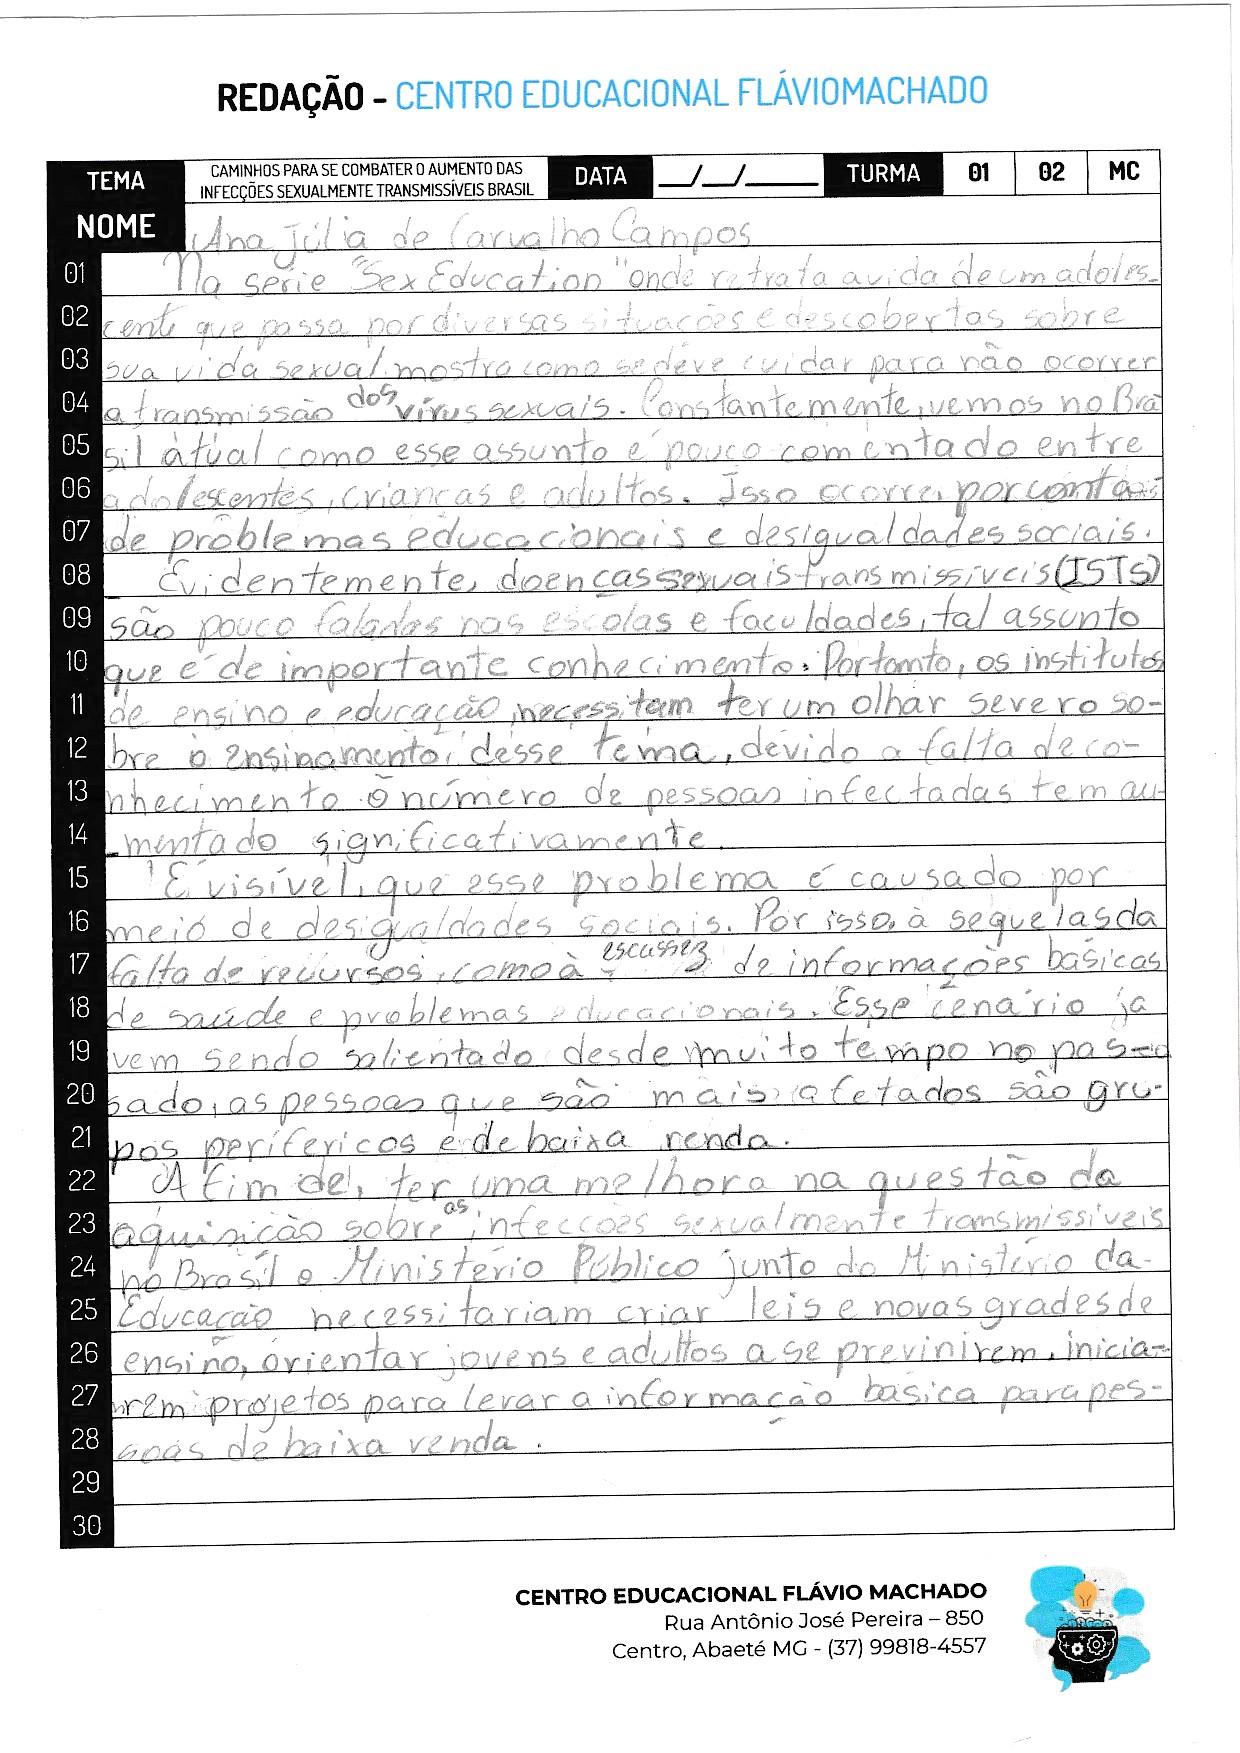 REDAÇÃO - CENTRO EDUCACIONAL FLÁVIOMACHADO
TEMA
CAMINHOS PARA SE COMBATER O AUMENTO DAS
INFECÇÕES SEXUALMENTE TRANSMISSÍVEIS BRASIL
DATA __/__/____ TURMA 01 02 MC
NOME Ana Júlia de Carvalho Campos
01 Na série "Sex Education" onde retrata a vida de um adoles-
02 cente que passa por diversas situações e descobertas sobre
03 sua vida sexual, mostra como se deve cuidar para não ocorrer
04 a transmissão dos vírus sexuais. Constantemente, vemos no Bra
05 sil atual como esse assunto é pouco comentado entre
06 adolescentes, crianças e adultos. Isso ocorre, por conta
07 de problemas educacionais e desigualdades sociais.
08 Evidentemente, doenças sexuais transmissíveis (ISTs)
09 são pouco faladas nas escolas e faculdades, tal assunto
10 que é de importante conhecimento. Portanto, os institutos
11 de ensino e educação, necessitam ter um olhar severo so-
12 bre o ensinamento desse tema, devido a falta de co-
13 nhecimento o número de pessoas infectadas tem au-
14 mentado significativamente.
15 É visível, que esse problema é causado por
16 meio de desigualdades sociais. Por isso, à sequelas da
17 falta de recursos, como à escassez de informações basicas
18 de saúde e problemas educacionais. Esse cenário ja
19 vem sendo salientado desde muito tempo no pas-
20 sado, as pessoas que são mais afetados são gru-
21 pos perifericos e de baixa renda.
22 A fim de, ter uma melhora na questão da
23 aquisição sobre as infecções sexualmente transmissíveis
24 no Brasil o Ministério Público junto do Ministério da
25 Educação necessitariam criar leis e novas grades de
26 ensino, orientar jovens e adultos a se previnirem, inicia-
27 rem projetos para levar a informação basica para pes-
28 soas de baixa renda.
29
30
CENTRO EDUCACIONAL FLÁVIO MACHADO
Rua Antônio José Pereira – 850
Centro, Abaeté MG - (37) 99818-4557